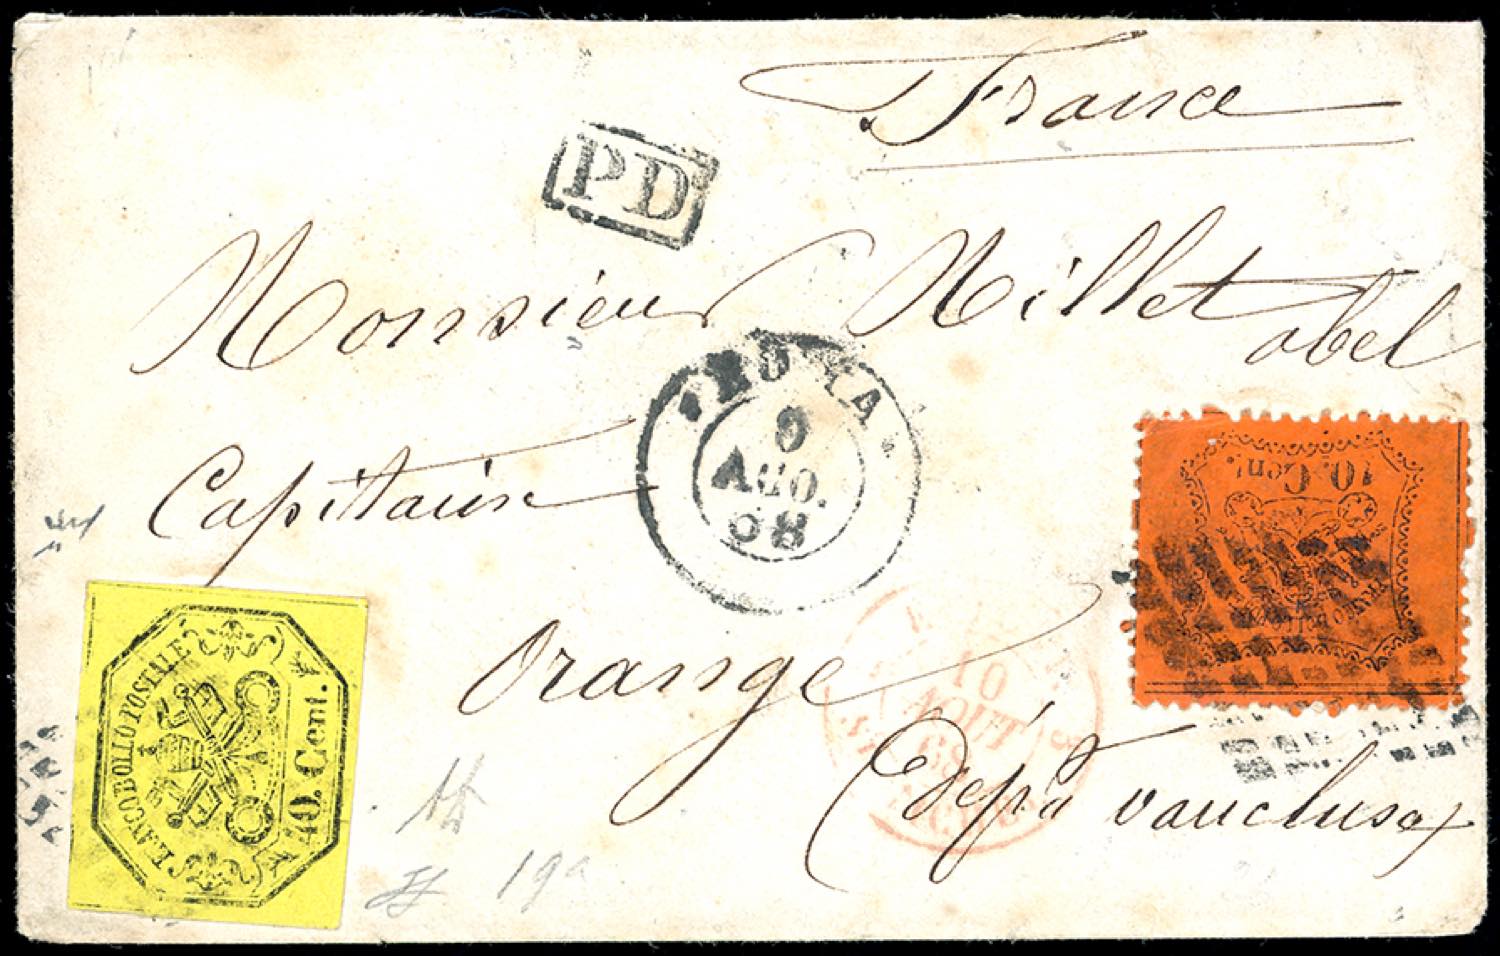 France
PD
Monsieur Millet
abel
Capitaine
9
AGO.
68
10. Cent.
FRANCO BOLLO POSTALE
40. Cent.
Orange
10
AOUT
68
Dépt vaucluse
19a